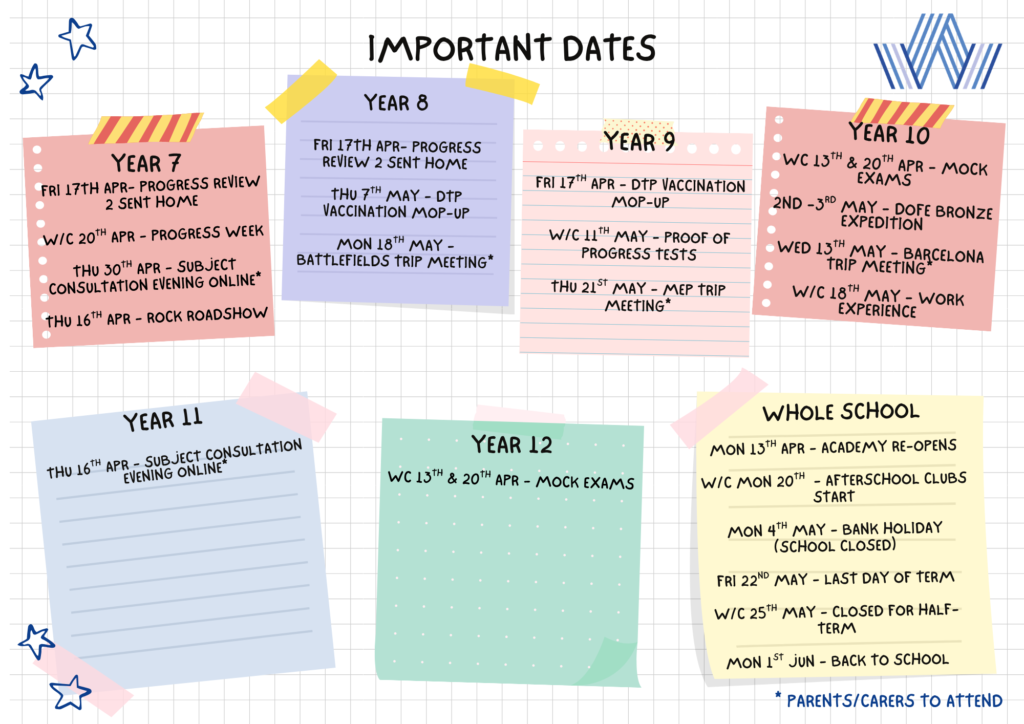 IMPORTANT DATES
YEAR 7
FRI 17TH APR- PROGRESS REVIEW
2 SENT HOME
W/C 20TH APR - PROGRESS WEEK
THU 30TH APR - SUBJECT
CONSULTATION EVENING ONLINE*
THU 16TH APR - ROCK ROADSHOW
YEAR 8
FRI 17TH APR- PROGRESS
REVIEW 2 SENT HOME
THU 7TH MAY - DTP
VACCINATION MOP-UP
MON 18TH MAY -
BATTLEFIELDS TRIP MEETING*
YEAR 9
FRI 17TH APR - DTP VACCINATION
MOP-UP
W/C 11TH MAY - PROOF OF
PROGRESS TESTS
THU 21ST MAY - MEP TRIP
MEETING*
YEAR 10
WC 13TH & 20TH APR - MOCK
EXAMS
2ND -3RD MAY - DOFE BRONZE
EXPEDITION
WED 13TH MAY - BARCELONA
TRIP MEETING*
W/C 18TH MAY - WORK
EXPERIENCE
YEAR 11
THU 16TH APR - SUBJECT CONSULTATION
EVENING ONLINE*
YEAR 12
WC 13TH & 20TH APR - MOCK EXAMS
WHOLE SCHOOL
MON 13TH APR - ACADEMY RE-OPENS
W/C MON 20TH - AFTERSCHOOL CLUBS
START
MON 4TH MAY - BANK HOLIDAY
(SCHOOL CLOSED)
FRI 22ND MAY - LAST DAY OF TERM
W/C 25TH MAY - CLOSED FOR HALF-
TERM
MON 1ST JUN - BACK TO SCHOOL
* PARENTS/CARERS TO ATTEND